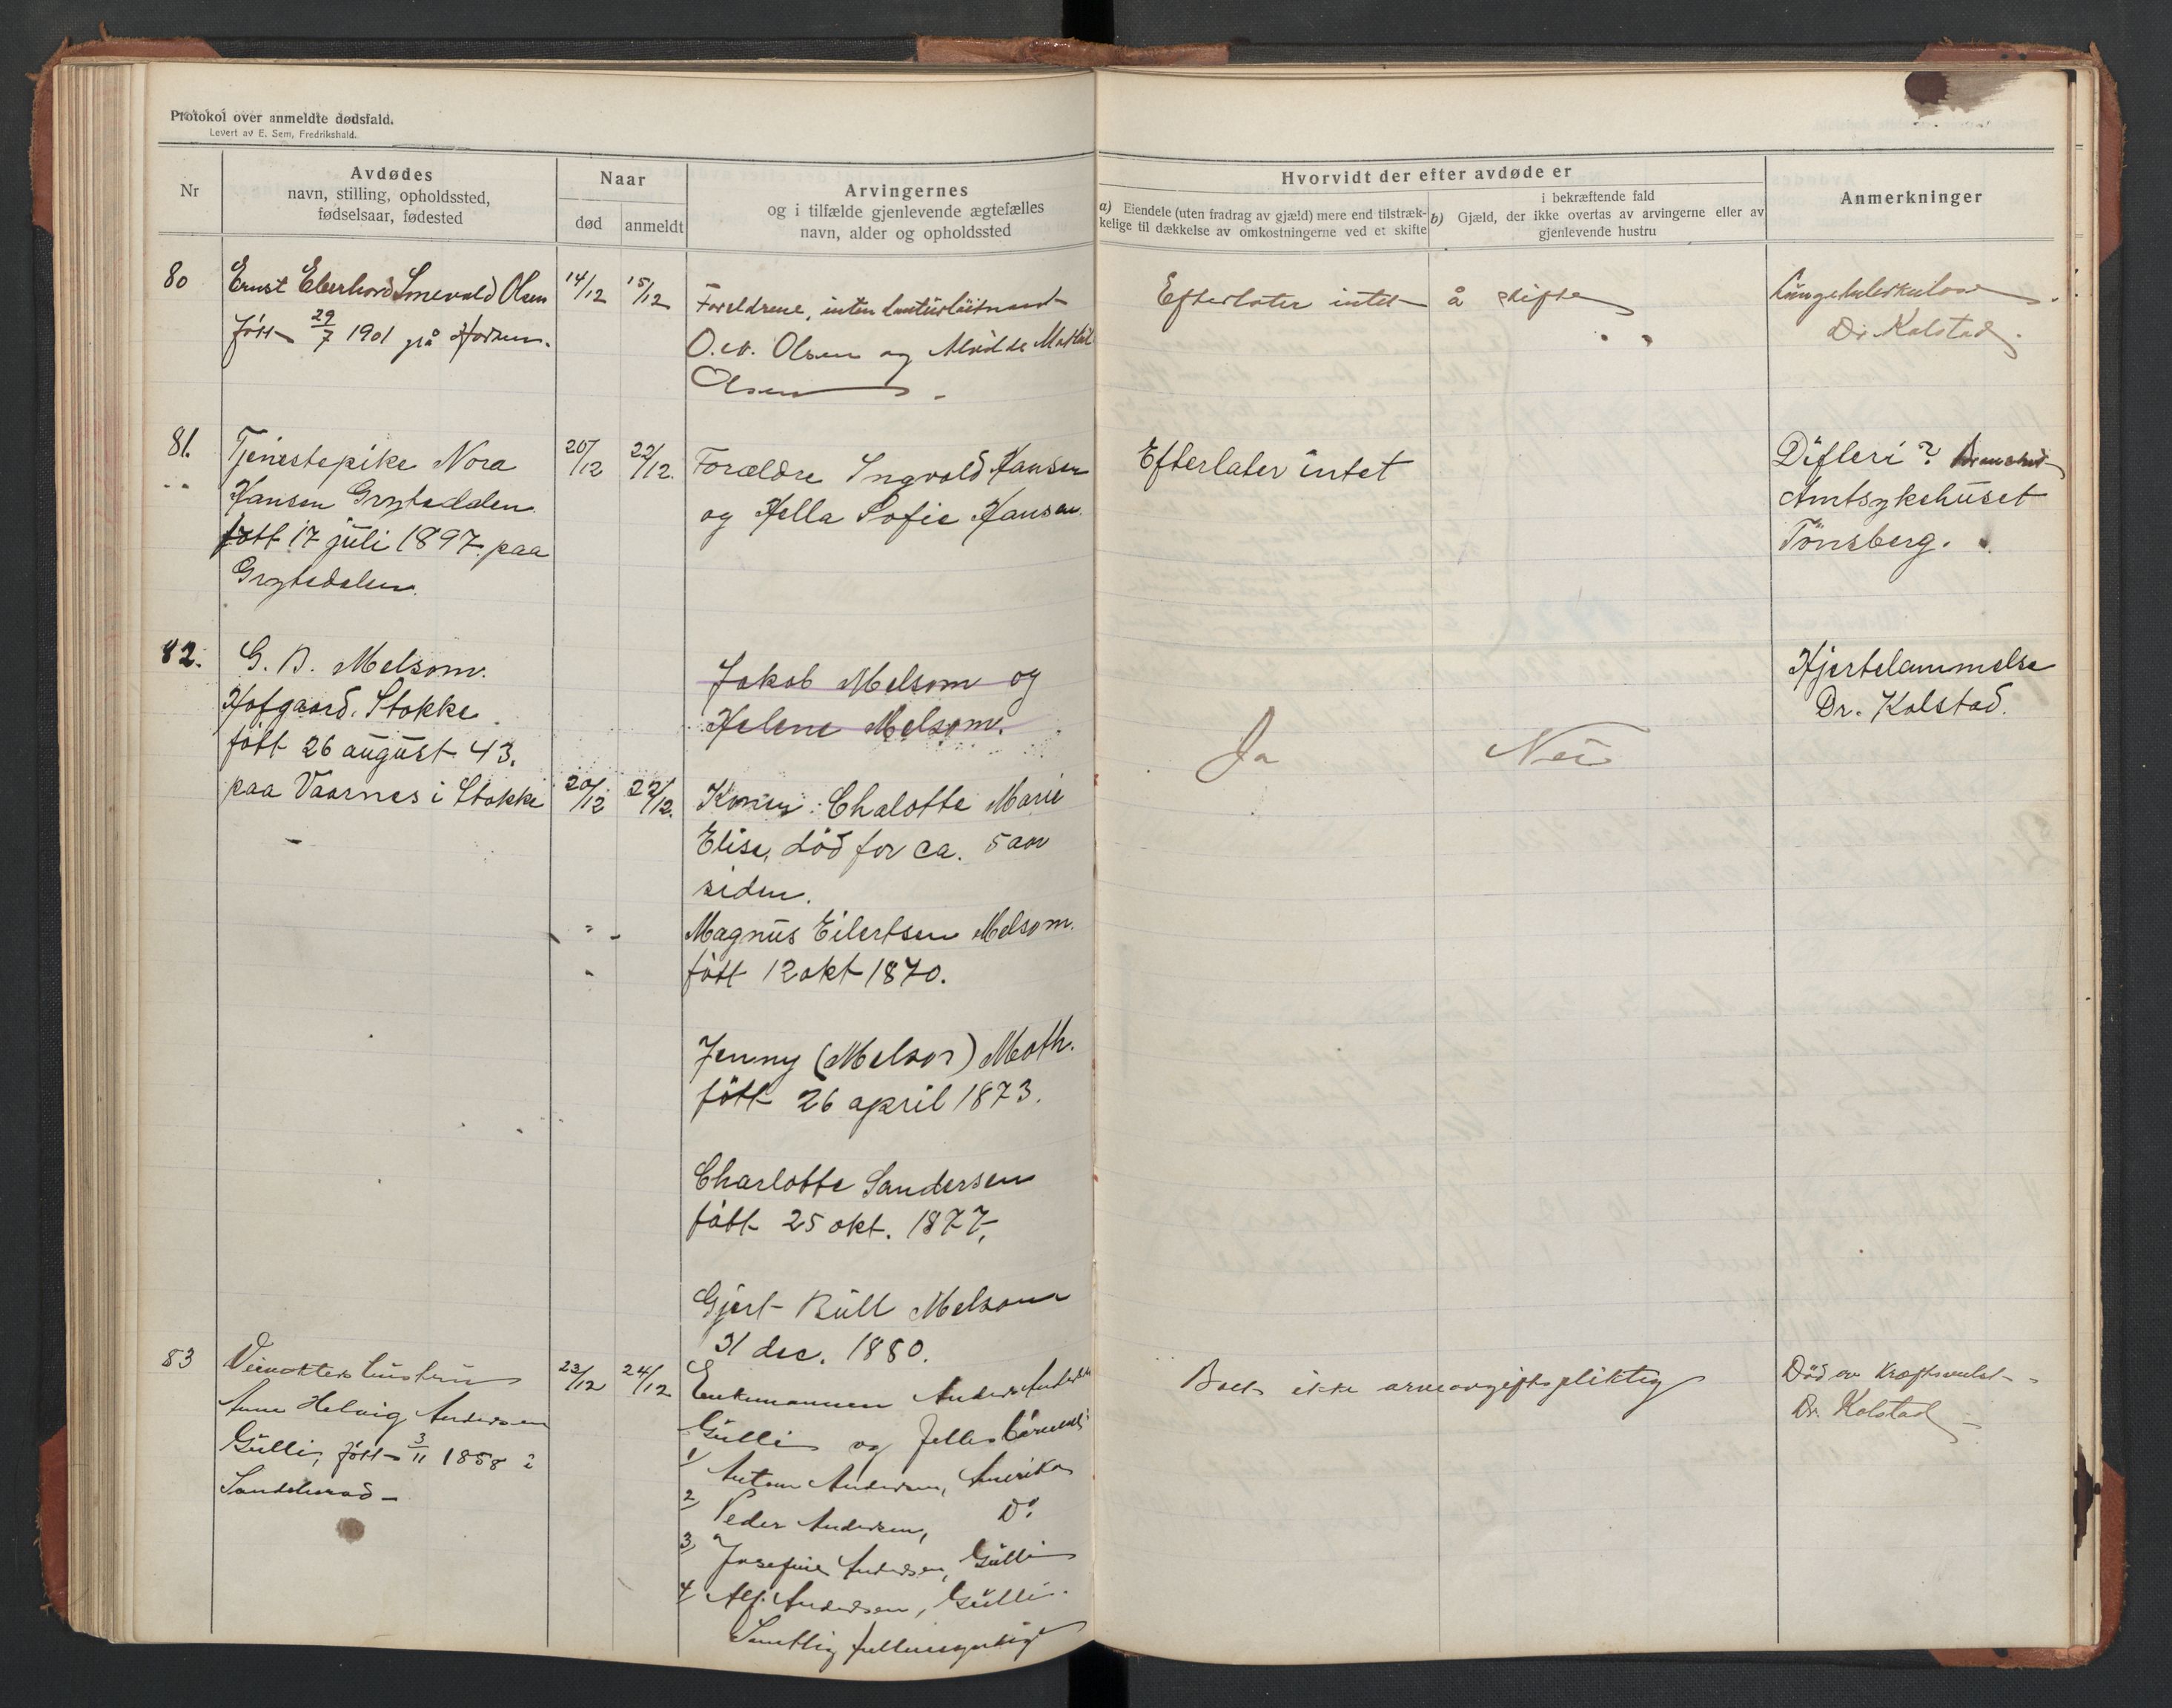 Protokol over anmeldte dødsfald.
Levert av E. Sem, Fredrikshald.
Nr
Avdødes
navn, stilling, opholdssted,
fødselsaar, fødested
Naar
død
anmeldt
Arvingernes
og i tilfælde gjenlevende ægtefælles
navn, alder og opholdssted
Hvorvidt der efter avdøde er
a) Eiendele (uten fradrag av gjæld) mere end tilstræk-
kelige til dækkelse av omkostningerne ved et skifte
i bekræftende fald
b) Gjæld, der ikke overtas av arvingerne eller av
gjenlevende hustru
Anmerkninger
80
Ernst Eberhard Olsen
født 29/7 1901 på
14/12
15/12
Foreldrene,
O. Olsen og
Olsen
Efterlater intet å skifte
Lungetuberkulose
Dr Kolstad.
81.
Tjenestepike Nora
Hansen Grytedalen
født 17 juli 1897 paa
Grytedalen.
20/12
22/12.
Forældre Ingvald Hansen
og Hella Sofie Hansen.
Efterlater intet
Difteri?
Amtsykehuset
Tönsberg.
82.
G. B. Melsom.
Hofgaard, Stokke.
født 26 august 43.
paa Vaarnes i Stokke
20/12
22/12.
Jakob Melsom og
Helene Melsom.
Konen: Chalotte Marie
Elise, död for ca. 5 aar
siden.
Magnus Eilertsen Melsom.
født 12 okt 1870.
Jenny (Melsom) Moth.
född 26 april 1873.
Charlotte Sandersen
født 25 okt. 1877.
Gjert Bull Melsom
31 dec. 1880.
Ja
Nei
Hjertelammelse
Dr. Kolstad.
83
hustru
Anne Helvig Andersen
Gulli, født 3/11 1858 i
Sandeherad
23/12
24/12
Enkemannen Anders Andersen
Gulli og fellesbarnene:
1/ Anton Andersen, Amerika
2/ Peder Andersen, Do
3/ Josefine Andersen, Gulli
4/ Alf Andersen, Gulli.
Samtlig fuldmyndige
Boet ikke arveavgiftspliktig
Död av Kræftsvulst
Dr. Kolstad